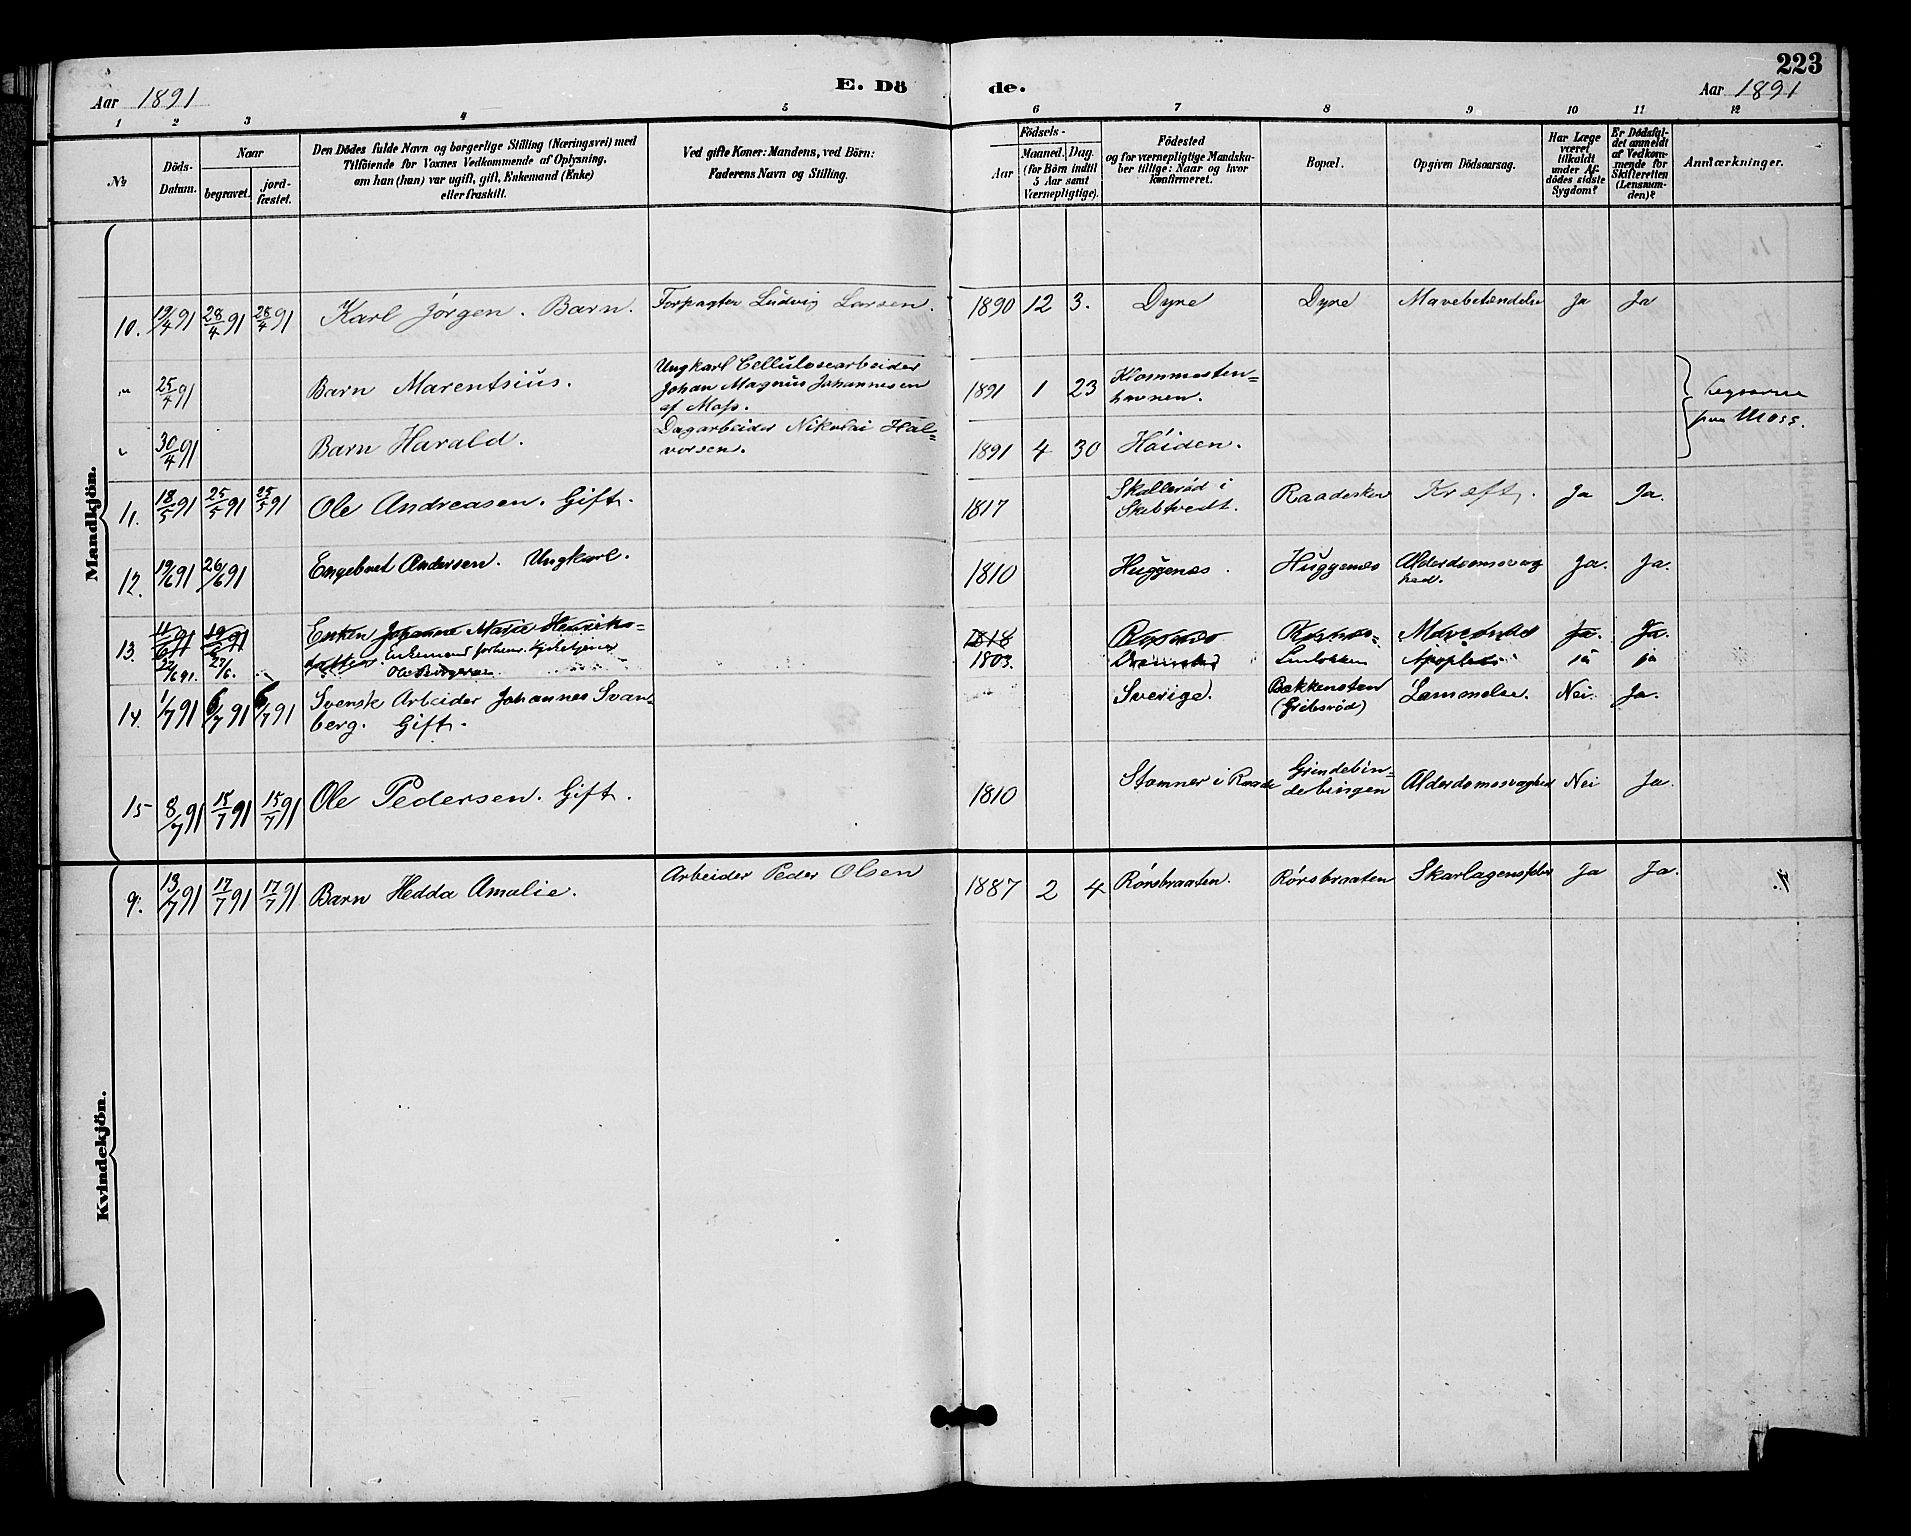 223
Aar 1891
E. Dö
de.
Aar 1891
1 2 3 4 5 6 7 8 9 10 11 12
№
Döds-
Datum.
Naar
begravet.
jord-
fæstet.
Den Dödes fulde Navn og borgerlige Stilling (Næringsvei) med
Tilföiende for Voxnes Vedkommende af Oplysning,
om han (hun) var ugift, gift, Enkemand (Enke)
eller fraskilt.
Ved gifte Koner: Mandens, ved Börn:
Faderens Navn og Stilling.
Födsels-
Aar
Maaned. Dag.
(for Börn indtil
5 Aar samt
Værnepligtige).
Födested
og for værnepligtige Mandska-
ber tillige: Naar og hvor
konfirmeret.
Bopæl.
Opgiven Dödsaarsag.
Har Læge
været
tilkaldt
under Af-
dödes sidste
Sygdom?
Er Dödsfal-
det anmeldt
af Vedkom-
mende for
Skifteretten
(Lensman-
den)?
Anmærkninger.
Mandkjön.
10. 19/4 91 28/4 91 28/4 91 Karl Jørgen. Barn. Forpagter Ludvig Larsen. 1890 12 3. Dyre Dyre Mavebetændelse Ja Ja
" 25/4 91 Barn Marentsius. Ungkarl Cellulosearbeider
Johan Magnus Johannesen
af Moss. 1891 1 23 Klommesten=
havnen. begravne
paa Moss.
" 30/4 91 Barn Harald. Dagarbeider Nikolai Hal=
vorsen. 1891 4 30 Høiden.
11. 18/5 91 25/5 91 25/5 91 Ole Andreasen. Gift. 1817 Skallerød i
Skibtvedt. Raadesken Kræft. Ja Ja.
12. 19/6 91 26/6 91 Engebret Andersen. Ungkarl. 1810 Huggenæs. Huggenæs Alderdomssvag
hed. Ja. Ja.
13. 11/6 91 19/6 91 Enken Johanne Marie Henriks=
datter. 1818 Maveonde Ja. Ja.
22/6 91. 27/6. Enkemand forhenv. Kirketjener
Ole 1803. Apoplexi ja ja
14. 1/7 91 6/7 91 6/7 91 Svensk Arbeider Johannes Svan=
berg. Gift. Sverige. Bakkensten
(Gribsrød) Lammelse. Nei Ja.
15 8/7 91 15/7 91 15/7 91 Ole Pedersen. Gift. 1810 Stomner i Raade Grindebin=
debingen Alderdomssvaghed Nei Ja.
Kvindekjön.
9. 13/7 91 17/7 91 17/7 91 Barn Hedda Amalie. Arbeider Peder Olsen 1887 2 4 Rørsbraaten. Rørsbraaten Skarlagensfeber Ja Ja.